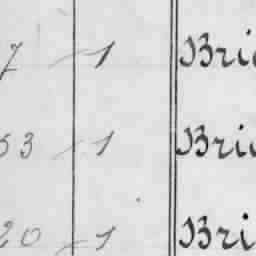 7 1 Bri
53 1 Bri
20 1 Bri